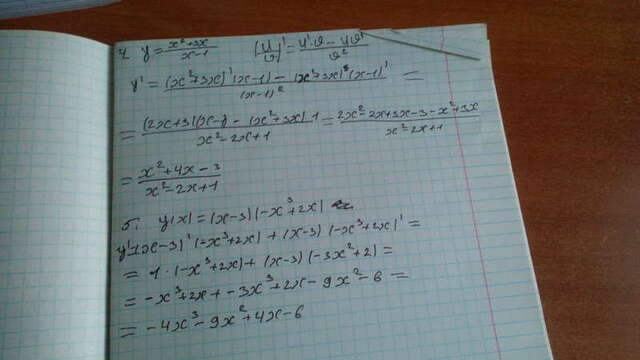 4. y = (x²+3x)/(x-1)   (U/ϑ)' = (U'ϑ - Uϑ')/ϑ²
y' = ((x²+3x)'(x-1) - (x²+3x)(x-1)')/(x-1)² =
= ((2x+3)(x-1) - (x²+3x)·1)/(x²-2x+1) = (2x²-2x+3x-3-x²+3x)/(x²-2x+1)
= (x²+4x-3)/(x²-2x+1)
5. y(x) = (x-3)(-x³+2x)
y'=(x-3)'(-x³+2x) + (x-3)(-x³+2x)' =
= 1·(-x³+2x)+(x-3)(-3x²+2) =
= -x³+2x+-3x³+2x-9x²-6 =
= -4x³-9x²+4x-6